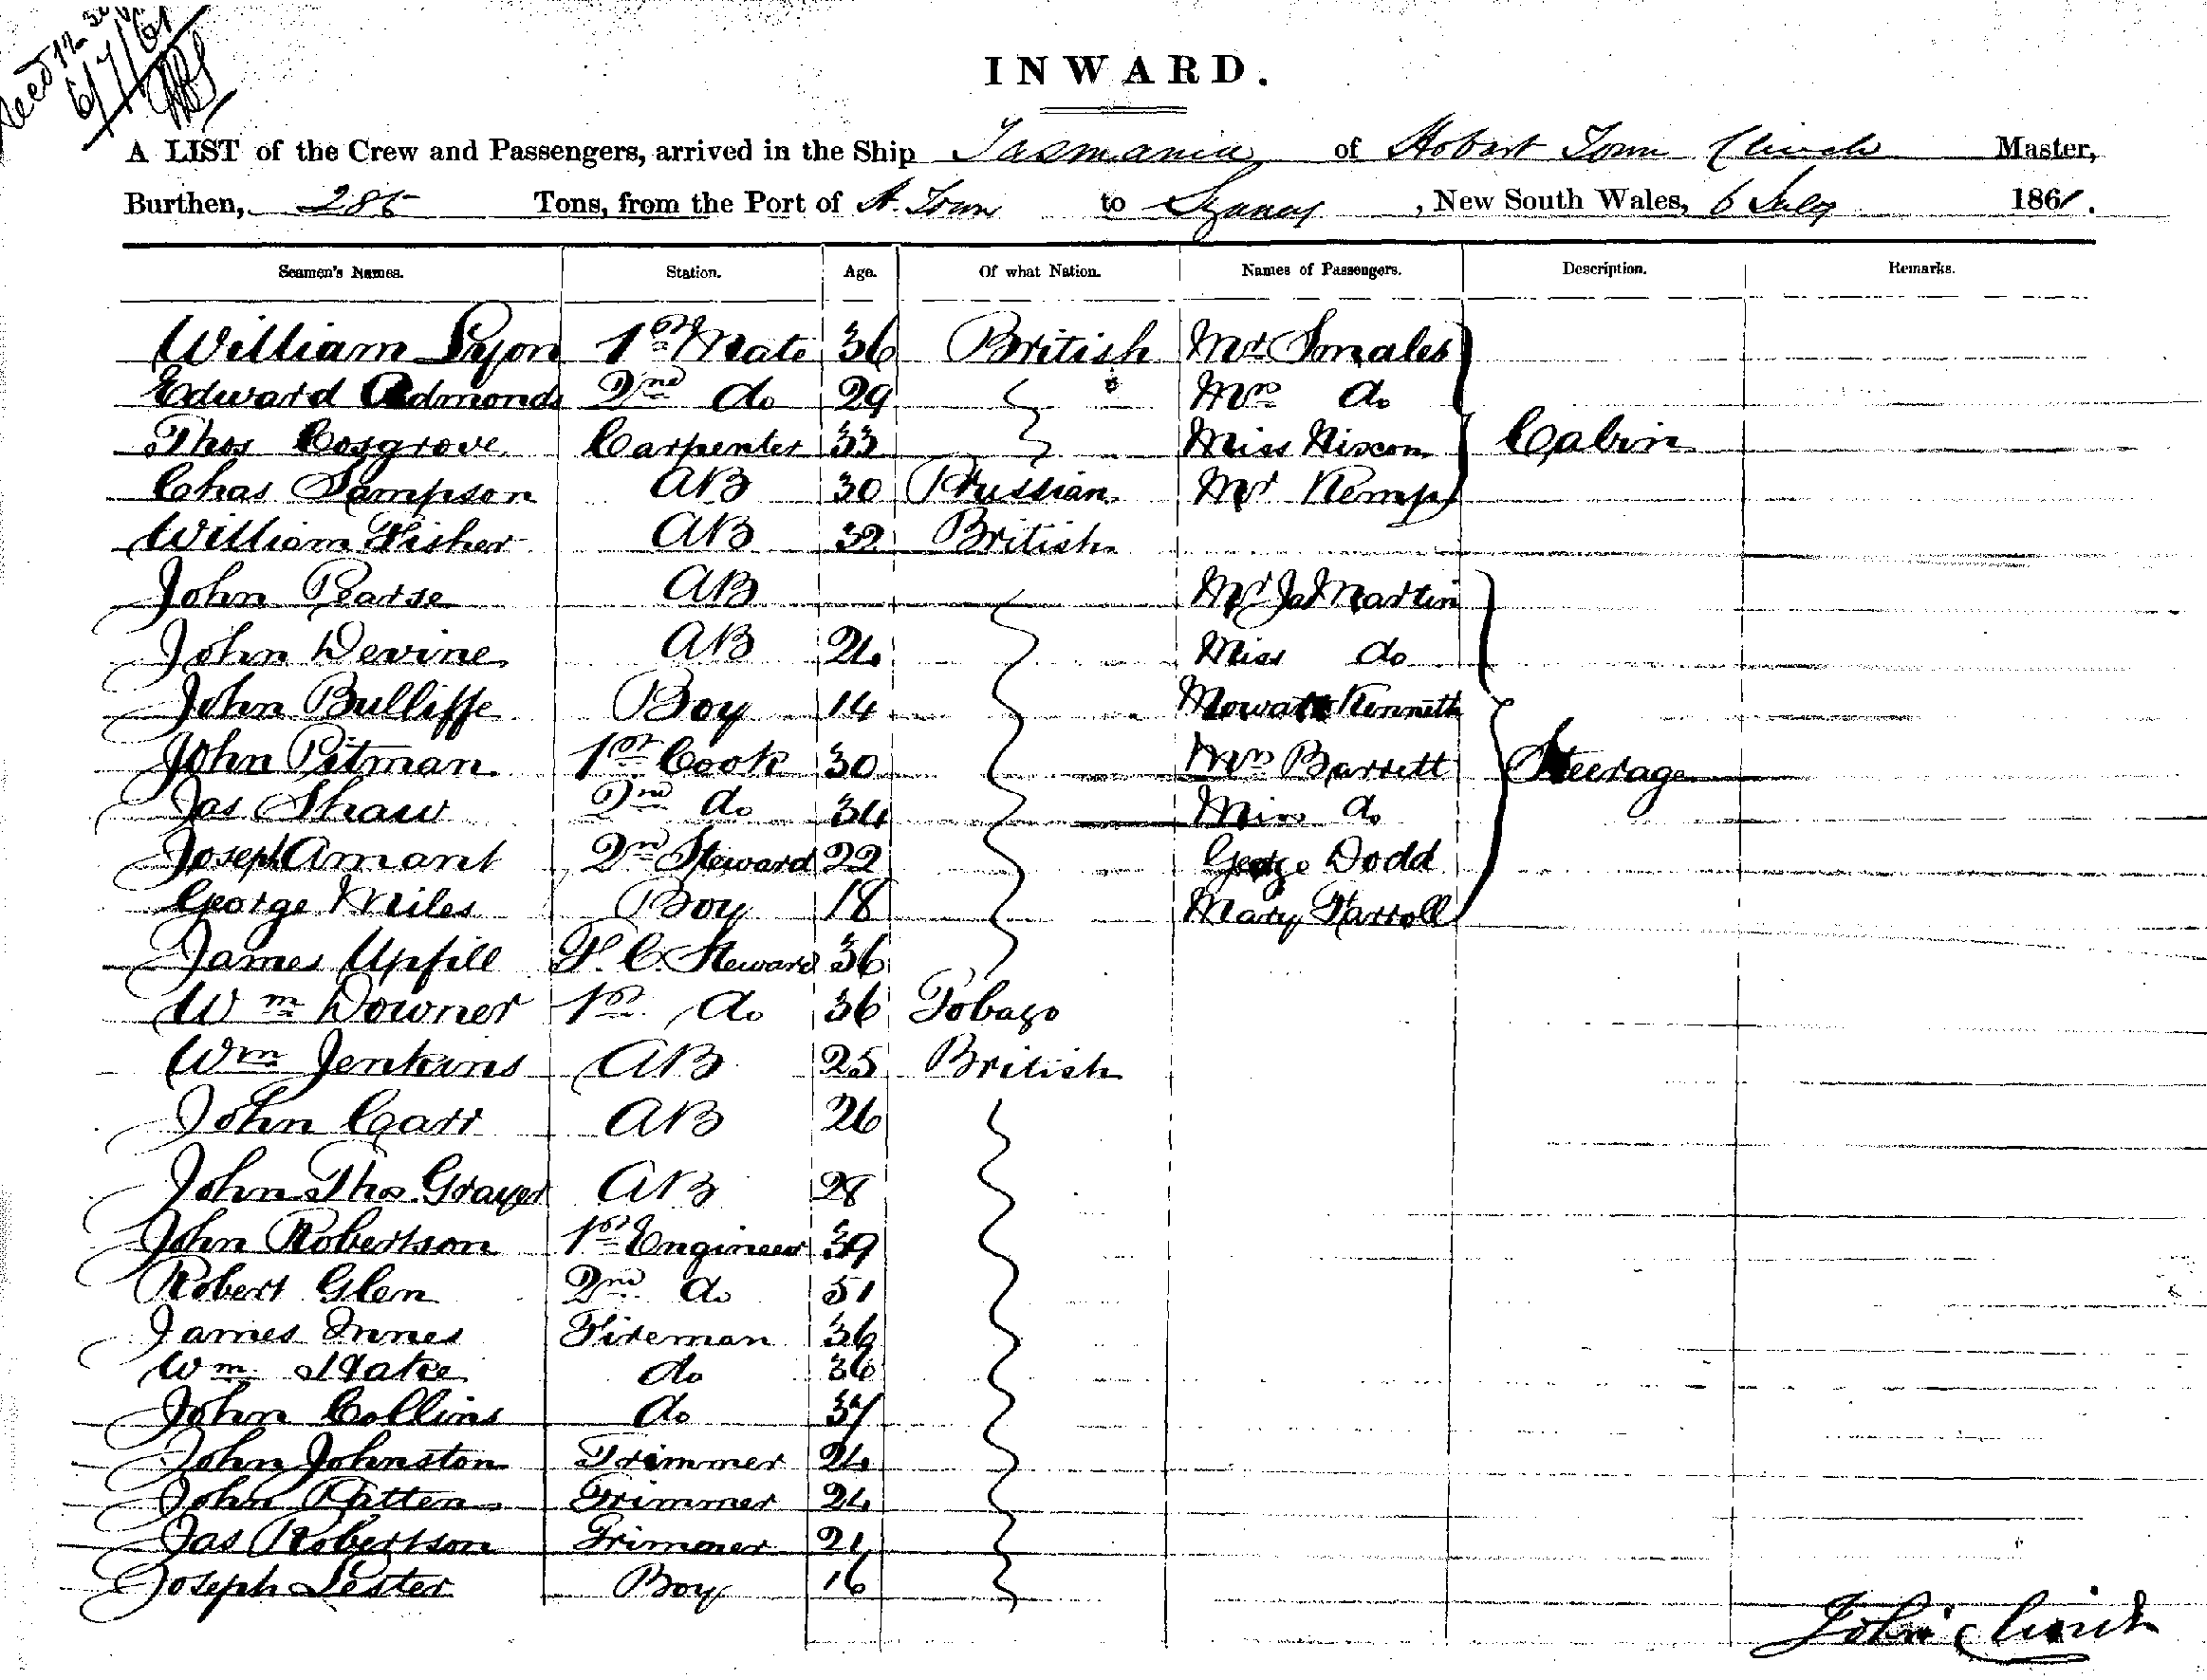 Recd 12 30
6/7/61
INWARD.
A LIST of the Crew and Passengers, arrived in the Ship Tasmania of Hobart Town Clinch Master,
Burthen, 285 Tons, from the Port of H. Town to Sydney, New South Wales, 6 July 1861.
Seamen's Names. Station. Age. Of what Nation. Names of Passengers. Description. Remarks.
William Lyon 1st Mate 36 British Mr Smales
Edward Admonds 2nd do 29 Mrs do
Thos Cosgrove Carpenter 33 Miss Nixon Cabin
Chas Sampson AB 30 Prussian Mr Kemp
William Fisher AB 32 British
John Pearse AB Mr Jas Martin
John Devine AB 24 Miss do
John Bulliffe Boy 14 Mowatt Kenneth
John Pitman 1st Cook 30 Mrs Barrett Steerage
Jas Shaw 2nd do 34 Miss do
Joseph Amant 2nd Steward 22 George Dodd
George Miles Boy 18 Mary Farroll
James Upfill F. C. Steward 36
Wm Downer 1st do 36 Tobago
Wm Jenkins AB 25 British
John Carr AB 26
John Thos Grayer AB 28
John Robertson 1st Engineer 39
Robert Glen 2nd do 51
James Innes Fireman 36
Wm Hake do 36
John Collins do 37
John Johnston Trimmer 24
John Patten Trimmer 24
Jas Robertson Trimmer 21
Joseph Lester Boy 16
John Clinch